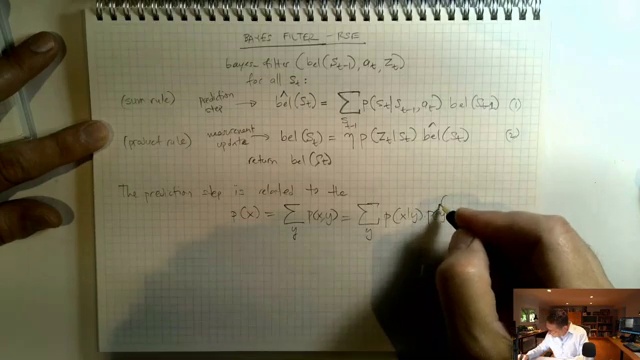 BAYES FILTER - RSE
bayes filter (bel(S_{t-1}), a_t, Z_t)
for all S_t:
(sum rule) prediction step → b̂el(S_t) = Σ_{S_{t-1}} p(S_t | S_{t-1}, a_t) bel(S_{t-1}) (1)
(product rule) measurement update → bel(S_t) = η p(Z_t | S_t) b̂el(S_t) (2)
return bel(S_t)
The prediction step is related to the
p(x) = Σ_y p(x,y) = Σ_y p(x|y) p(y